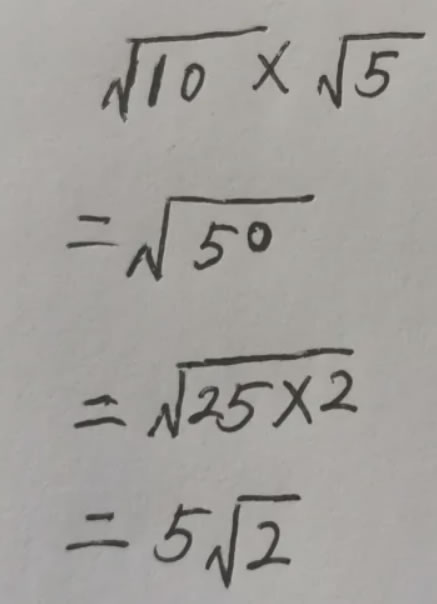 √10 × √5
= √50
= √25×2
= 5√2